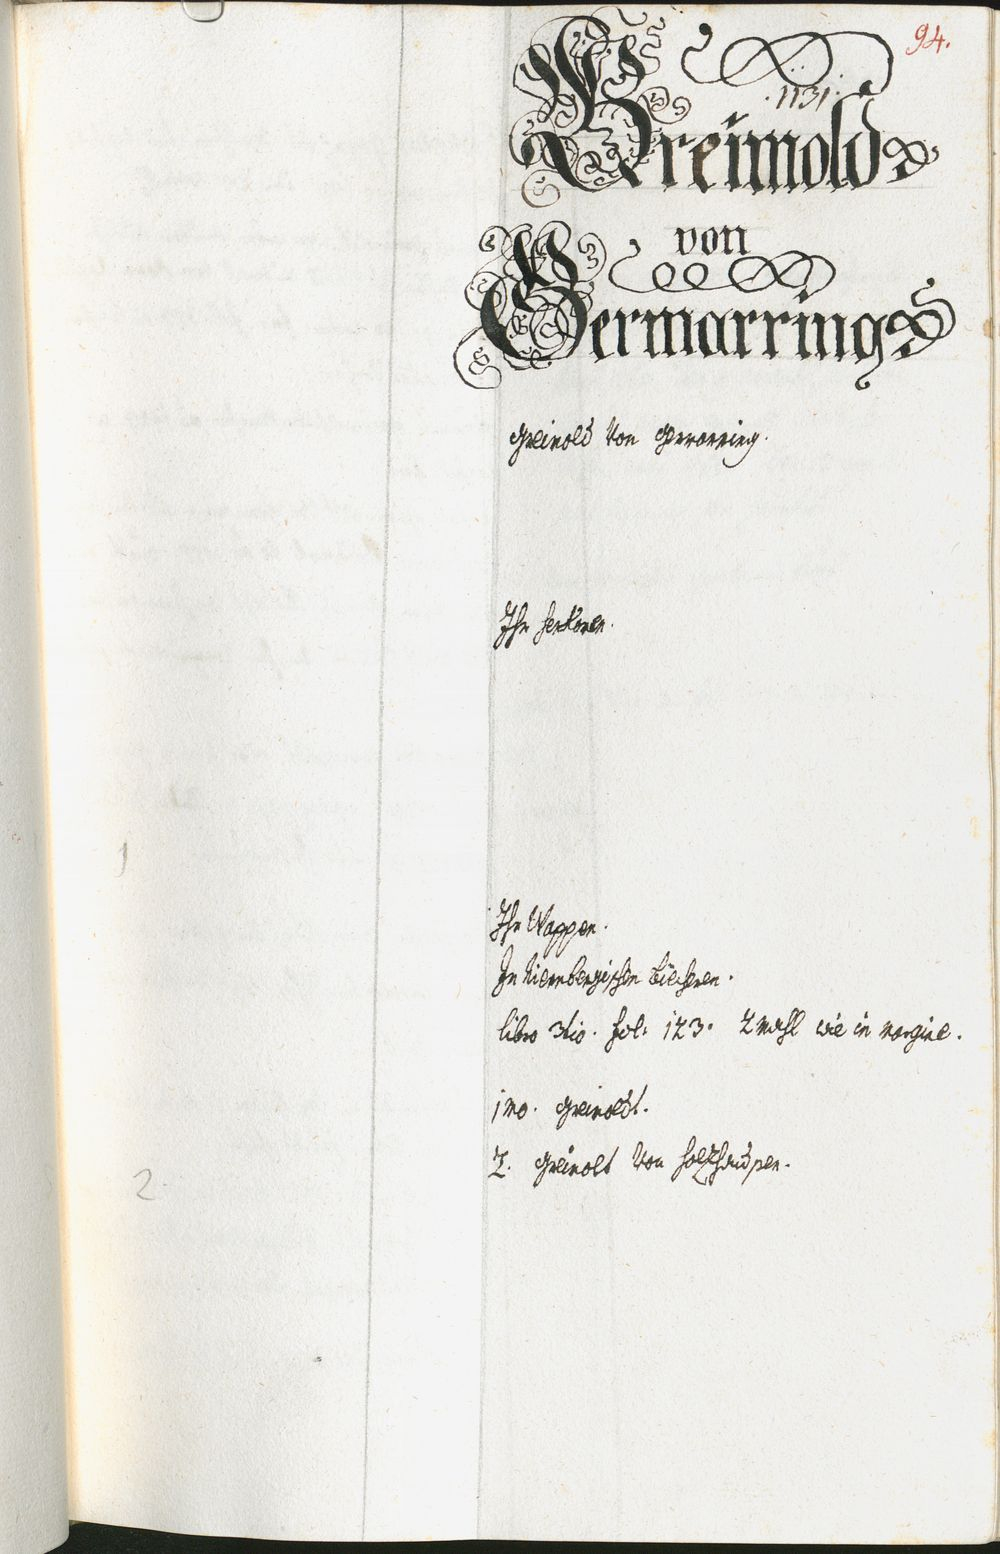 94.
.1131.
Greimold
von
Germarring
Greimold von Germarring.
Ihr herkomen.
Ihr Wappen.
In Niernbergischen Biecheren.
libro 3tio. fol. 123. 2 mahl wie in margine.
1mo. Greimoldt.
1
2. Greimolt von Holtzhausen.
2.